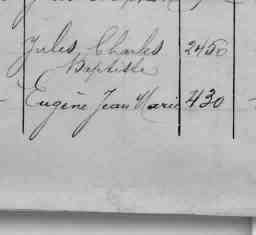 Jules, Charles 2450
Baptiste
Eugène Jean Marie 430